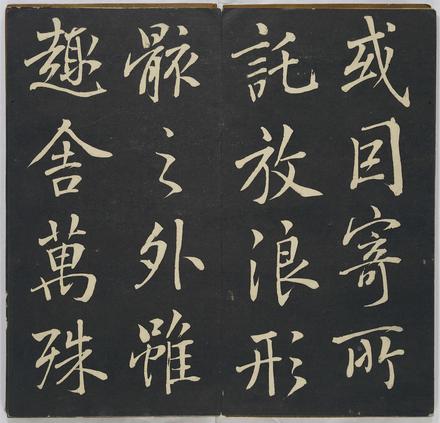 或因寄所
託放浪形
骸之外雖
趣舍萬殊